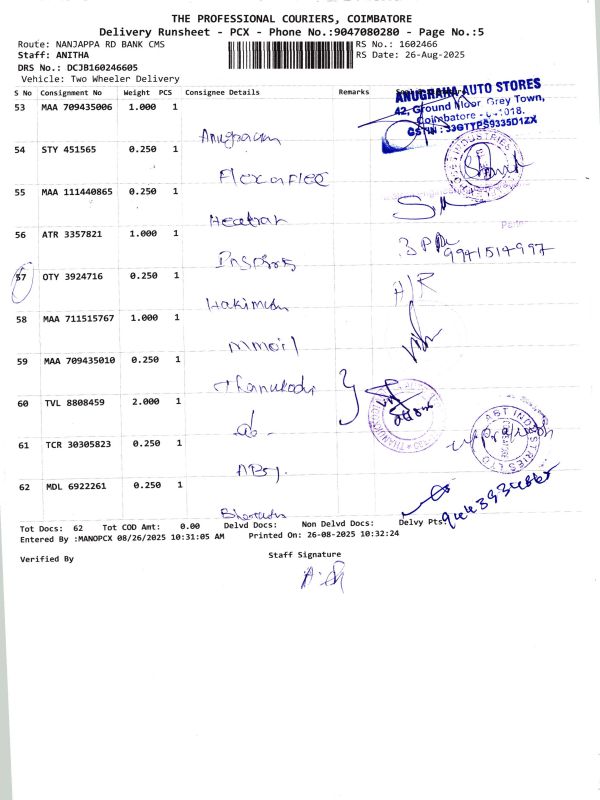 THE PROFESSIONAL COURIERS, COIMBATORE
Delivery Runsheet - PCX - Phone No.:9047080280 - Page No.:5
Route: NANJAPPA RD BANK CMS RS No.: 1602466
Staff: ANITHA RS Date: 26-Aug-2025
DRS No.: DCJB160246605
Vehicle: Two Wheeler Delivery
S No Consignment No Weight PCS Consignee Details Remarks
ANUGRAHA AUTO STORES
42, Ground Floor Grey Town,
Coimbatore - 641018.
GSTIN : 33GTYPS9335D1ZX
53 MAA 709435006 1.000 1
54 STY 451565 0.250 1
Flexoflec
55 MAA 111440865 0.250 1
56 ATR 3357821 1.000 1
9941514997
57 OTY 3924716 0.250 1
Hakimun
58 MAA 711515767 1.000 1
59 MAA 709435010 0.250 1
Thanukodi
60 TVL 8808459 2.000 1
61 TCR 30305823 0.250 1
ABT INDUSTRIES LTD
62 MDL 6922261 0.250 1
Tot Docs: 62 Tot COD Amt: 0.00 Delvd Docs: Non Delvd Docs: Delvy Pts:
Entered By :MANOPCX 08/26/2025 10:31:05 AM Printed On: 26-08-2025 10:32:24
Verified By Staff Signature